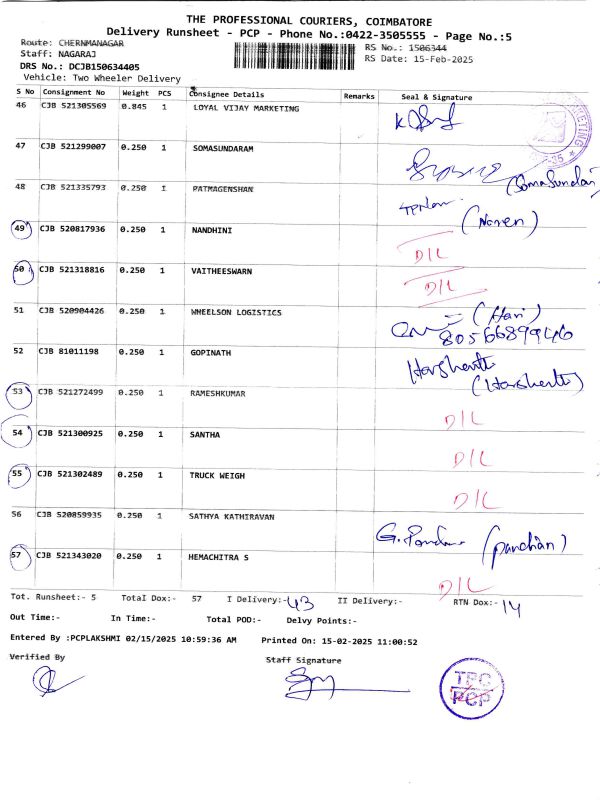 THE PROFESSIONAL COURIERS, COIMBATORE
Delivery Runsheet - PCP - Phone No.:0422-3505555 - Page No.:5
Route: CHERNMANAGAR
RS No.: 1506344
Staff: NAGARAJ
RS Date: 15-Feb-2025
DRS No.: DCJB150634405
Vehicle: Two Wheeler Delivery
S No Consignment No Weight PCS Consignee Details Remarks Seal & Signature
46 CJB 521305569 0.845 1 LOYAL VIJAY MARKETING
47 CJB 521299007 0.250 1 SOMASUNDARAM
(Somasundar)
48 CJB 521335793 0.250 1 PATMAGENSHAN
(Naren)
49 CJB 520817936 0.250 1 NANDHINI
D/L
50 CJB 521318816 0.250 1 VAITHEESWARN
D/L
51 CJB 520904426 0.250 1 WHEELSON LOGISTICS
(Hari)
8056689946
52 CJB 81011198 0.250 1 GOPINATH
Harshenth
(Harshenth)
53 CJB 521272499 0.250 1 RAMESHKUMAR
D/L
54 CJB 521300925 0.250 1 SANTHA
D/L
55 CJB 521302489 0.250 1 TRUCK WEIGH
D/L
56 CJB 520859935 0.250 1 SATHYA KATHIRAVAN
(pandian)
57 CJB 521343020 0.250 1 HEMACHITRA S
D/L
Tot. Runsheet:- 5 Total Dox:- 57 I Delivery:- 43 II Delivery:- RTN Dox:- 14
Out Time:- In Time:- Total POD:- Delvy Points:-
Entered By :PCPLAKSHMI 02/15/2025 10:59:36 AM Printed On: 15-02-2025 11:00:52
Verified By
Staff Signature
TPC
PCP